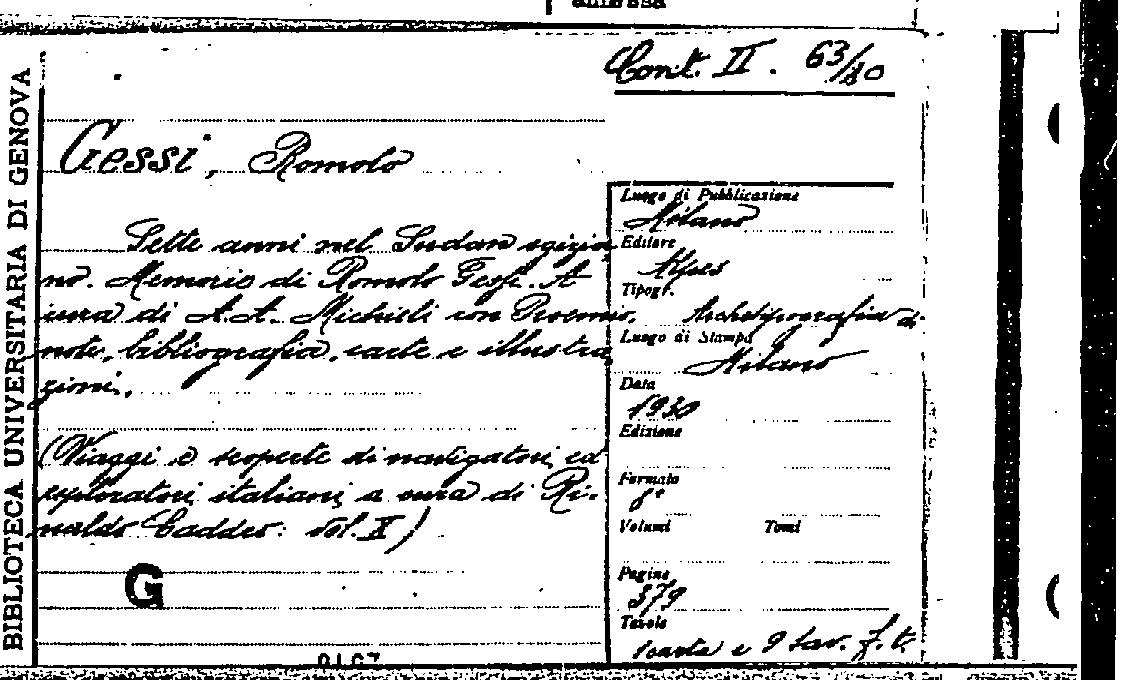 BIBLIOTECA UNIVERSITARIA DI GENOVA
Cont. II. 63/10
Gessi, Romolo
Sette anni nel Sudan egizia
no. Memorie di Romolo Gessi. A
cura di A.A. Michieli con Proemio,
note, bibliografia, carte e illustra
zioni.
(Viaggi e scoperte di navigatori ed
esploratori italiani, a cura di Ri-
naldo Caddeo: vol. X)
G
Luogo di Pubblicazione
Milano
Editore
Alpes
Tipogr.
Archetipografia di
Luogo di Stampa
Milano
Data
1930
Edizione
Formato
8°
Volumi Tomi
Pagine
379
Tavole
1 carta e 9 tav. f. t.